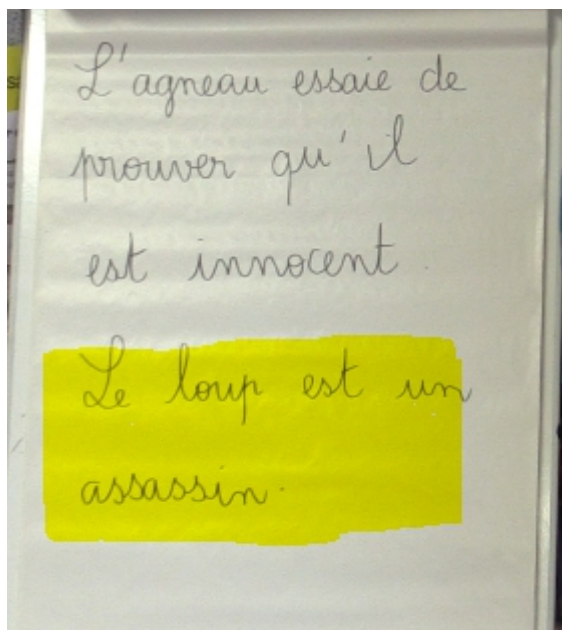 L'agneau essaie de
prouver qu'il
est innocent.
Le loup est un
assassin.